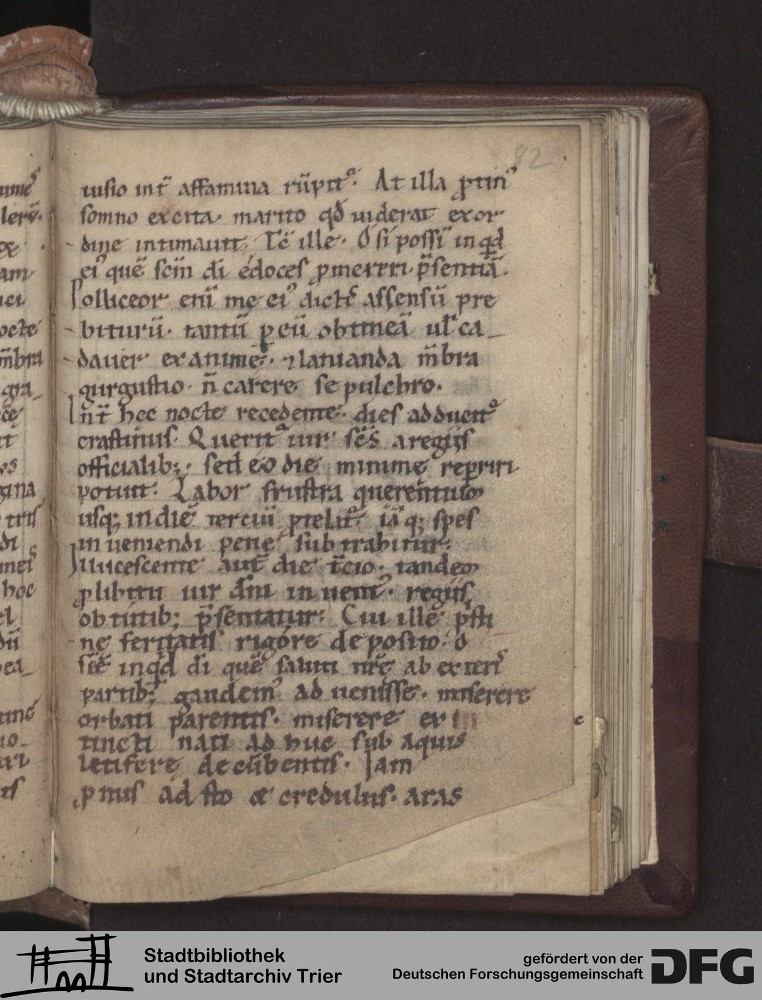 82
uisio int̄ affamina rūpit᷑. At illa ꝓtin᷒
somno excita marito qd̄ uiderat exor
dine intimauit. Tē ille. O si possī inqd̄
ei᷒ quē scīm di edoces ꝓmereri p̄sentiā.
Polliceor enī me ei᷒ dictē assensū pre
biturū. tantū ꝑ eū obtineā ul᷑ ca_
dauer exanime. ⁊ lanianda mēbra
gurgustio. n̄ carere sepulchro.
Int̄ hec nocte recedente. dies aduenit᷒
crastinus. Querit᷑ uir sc̄s a regiis
officialib;. sed eo die minime reperiri
potuit. Labor frustra querentium
usq; in diē terciū ꝓtelat᷑. iāq; spes
inueniendi pene subtrahitur.
Illucescente aut̄ die t̄cio. tandem
ꝓlibitu uir dn̄i inuent᷒. regiis
obtutib; p̄sentatur. Cui ille p̄sti
ne feritatis rigore deposito. O
sc̄e inqd̄ di quē saluti nr̄e ab exteri᷒
partib; gaudem᷒ aduenisse. miserere
orbati parentis. miserere ex
tincti nati adhuc sub aquis
letifere decūbentis. Iam
ꝓnus adsto & credulus. aras
Stadtbibliothek
und Stadtarchiv Trier
gefördert von der
Deutschen Forschungsgemeinschaft
DFG